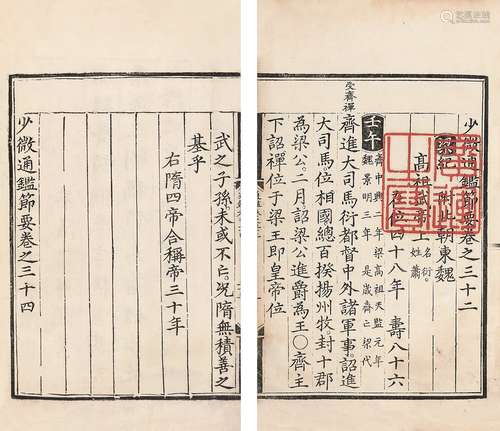 少微通鑑節要卷之三十二
梁紀 附北朝東魏
高祖武帝上 名衍。姓蕭
在位四十八年 壽八十六
受齊禪
壬午 齊中興二年梁高祖天監元年
魏景明三年 是歲齊亡梁代
齊進大司馬衍都督中外諸軍事。詔進
大司馬位相國總百揆揚州牧。封十郡
為梁公。二月詔梁公進爵為王〇齊主
下詔禪位于梁王即皇帝位
武之子孫未或不亡。況隋無積善之
基乎
右隋四帝合稱帝三十年
少微通鑑節要卷之三十四